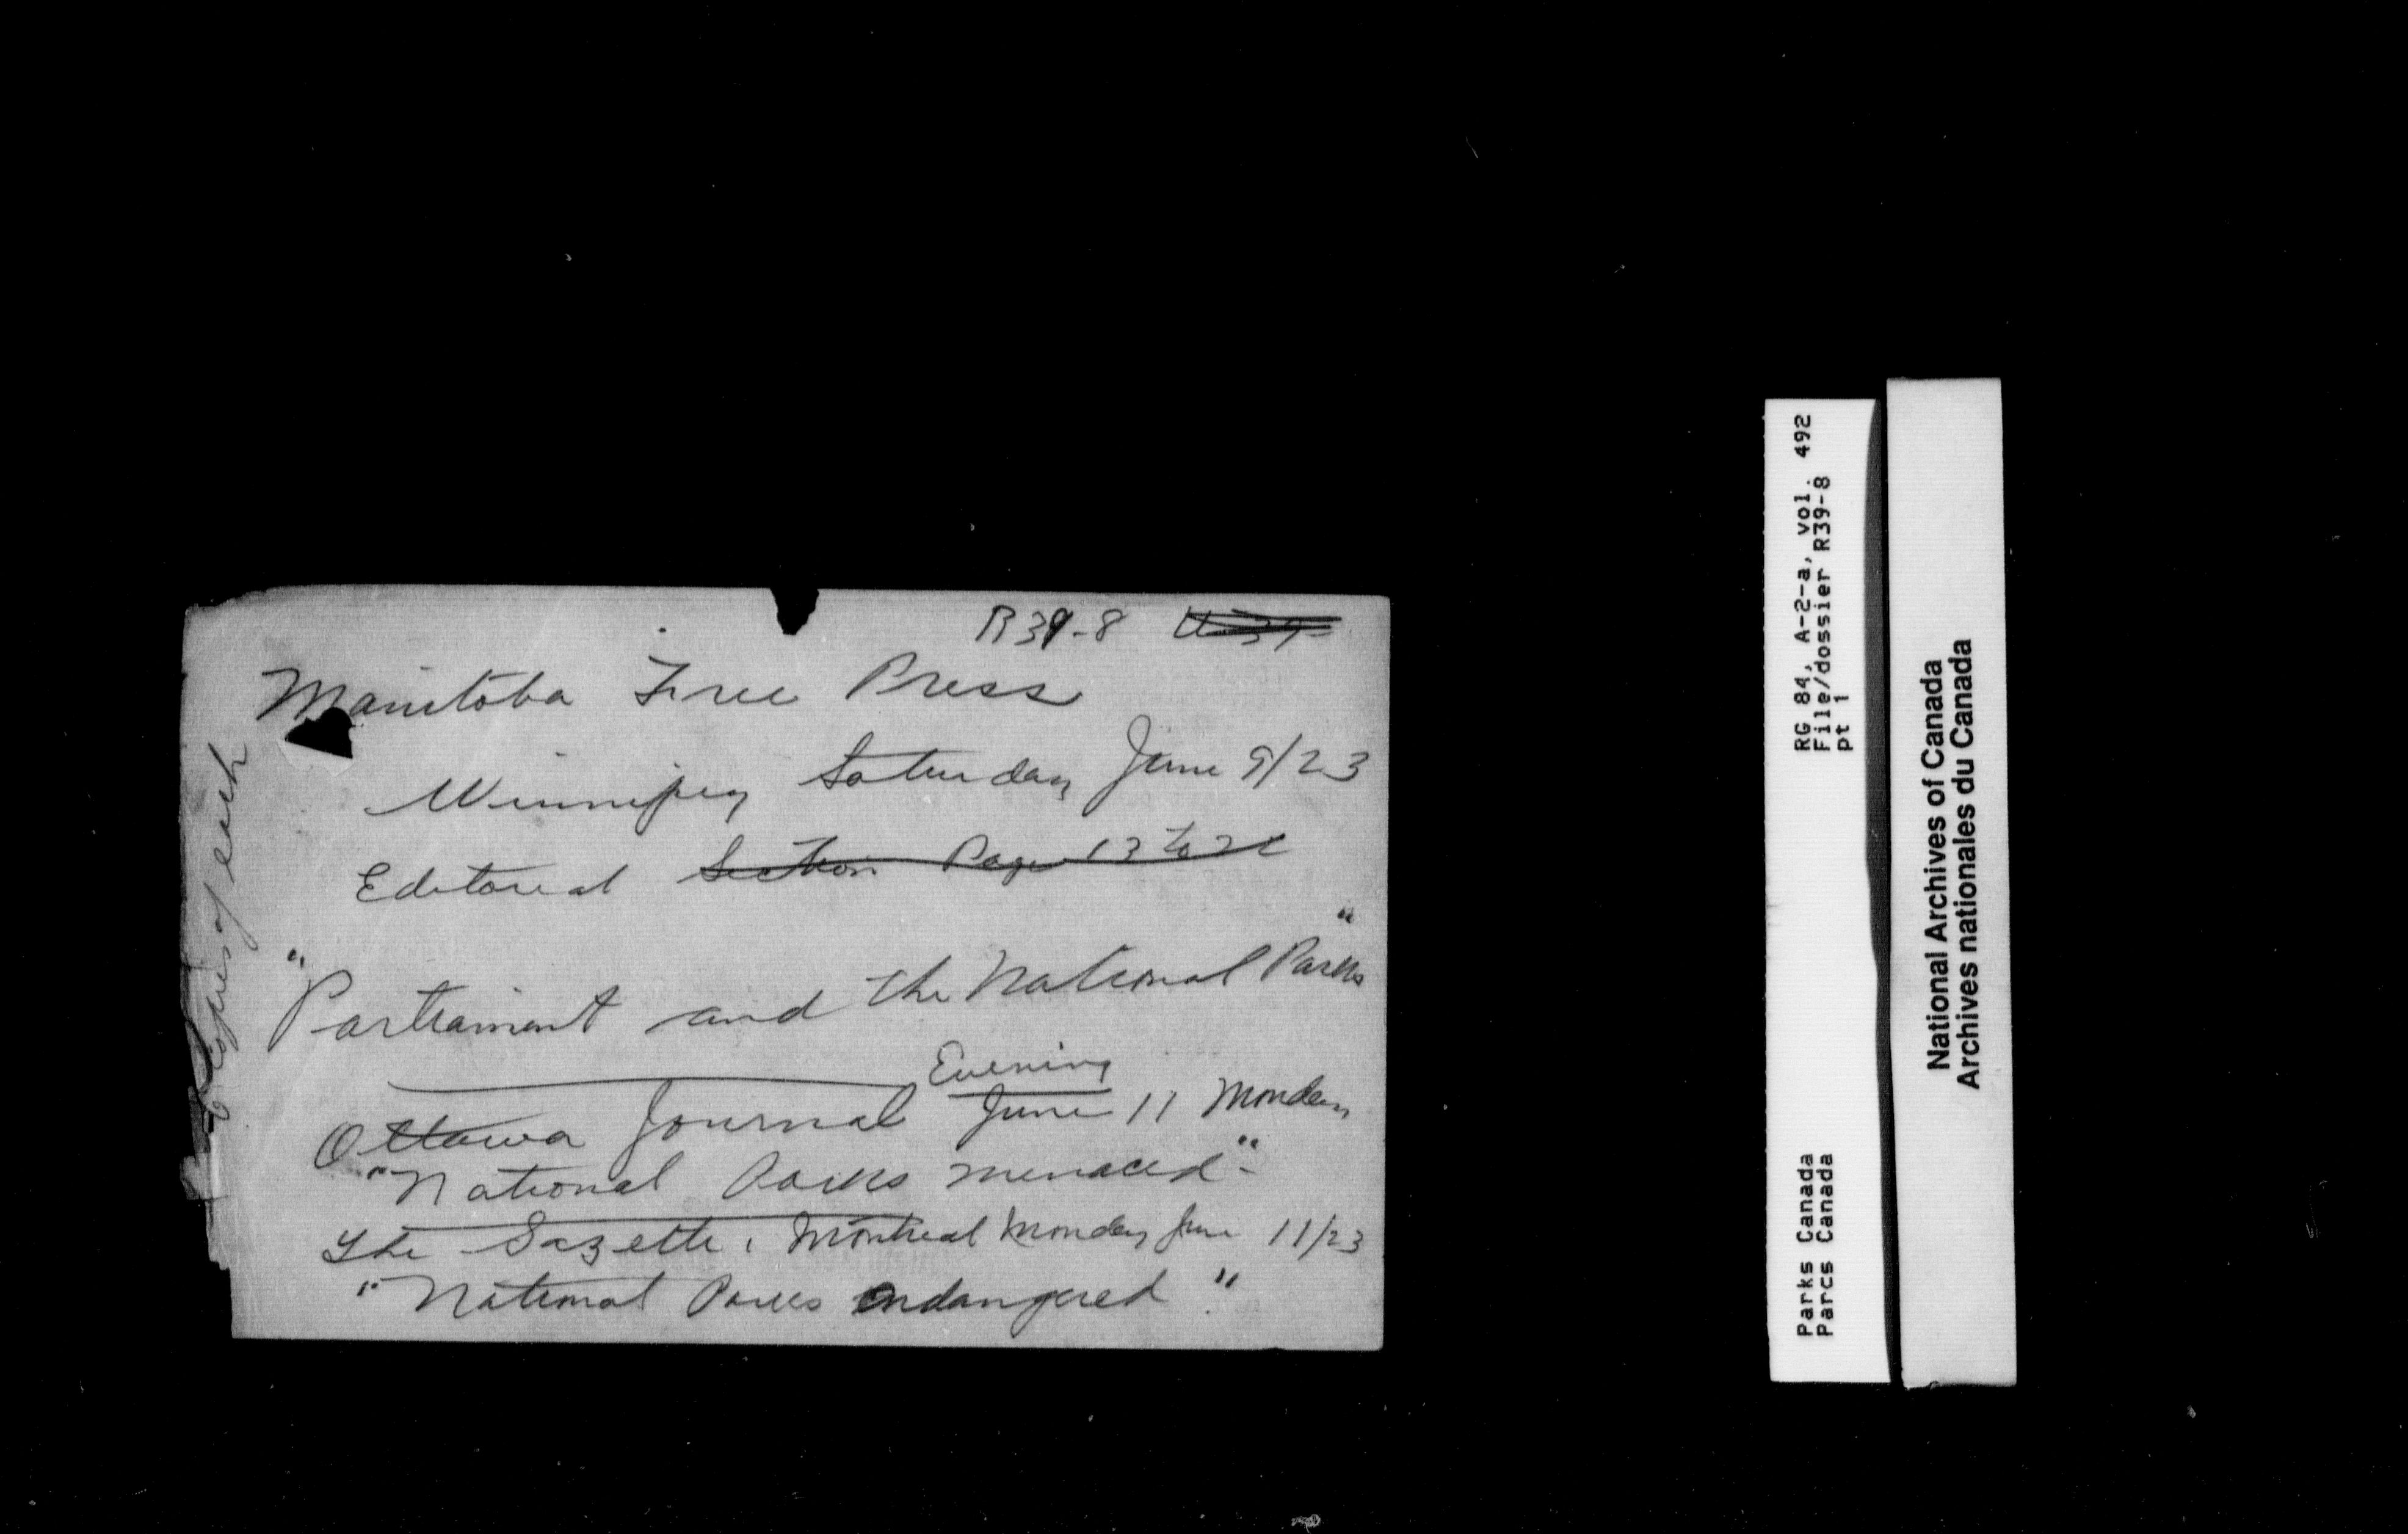 R39-8 U-39-
Manitoba Free Press
Winnipeg Saturday June 9/23
Editorial Section Page 13 to
"Parliament and the National Parks"
Evening
Ottawa Journal June 11 Monday
"National Parks menaced"
The Gazette, Montreal Monday June 11/23
"National Parks endangered."
copies of each
RG 84, A-2-a, vol. 492
File/dossier R39-8
pt 1
Parks Canada
Parcs Canada
National Archives of Canada
Archives nationales du Canada